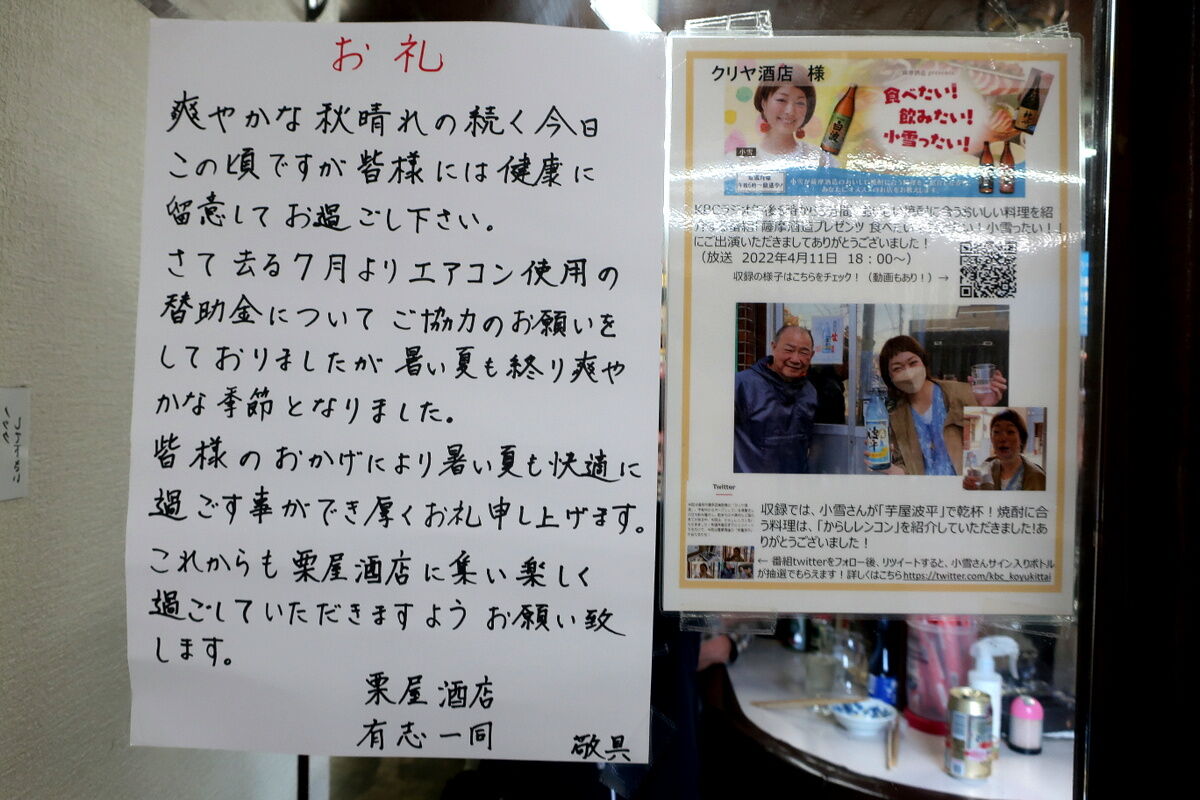 お礼
爽やかな秋晴れの続く今日
この頃ですが皆様には健康に
留意してお過ごし下さい。
さて去る7月よりエアコン使用の
替助金についてご協力のお願いを
しておりましたが暑い夏も終り爽や
かな季節となりました。
皆様のおかげにより暑い夏も快適に
過ごす事ができ厚くお礼申し上げます。
これからも栗屋酒店に集い楽しく
過ごしていただきますようお願い致
します。
栗屋酒店
有志一同
敬具
クリヤ酒店 様
食べたい!
飲みたい!
小雪ったい!
小雪
KBCラジオ
にご出演いただきましてありがとうございました!
(放送 2022年4月11日 18:00~)
収録の様子はこちらをチェック!(動画もあり!)→
Twitter
収録では、小雪さんが「芋屋波平」で乾杯!焼酎に合
う料理は、「からしレンコン」を紹介していただきました!あ
りがとうございました!
← 番組twitterをフォロー後、リツイートすると、小雪さんサイン入りボトル
が抽選でもらえます!詳しくはこちらhttps://twitter.com/kbc_koyukittai